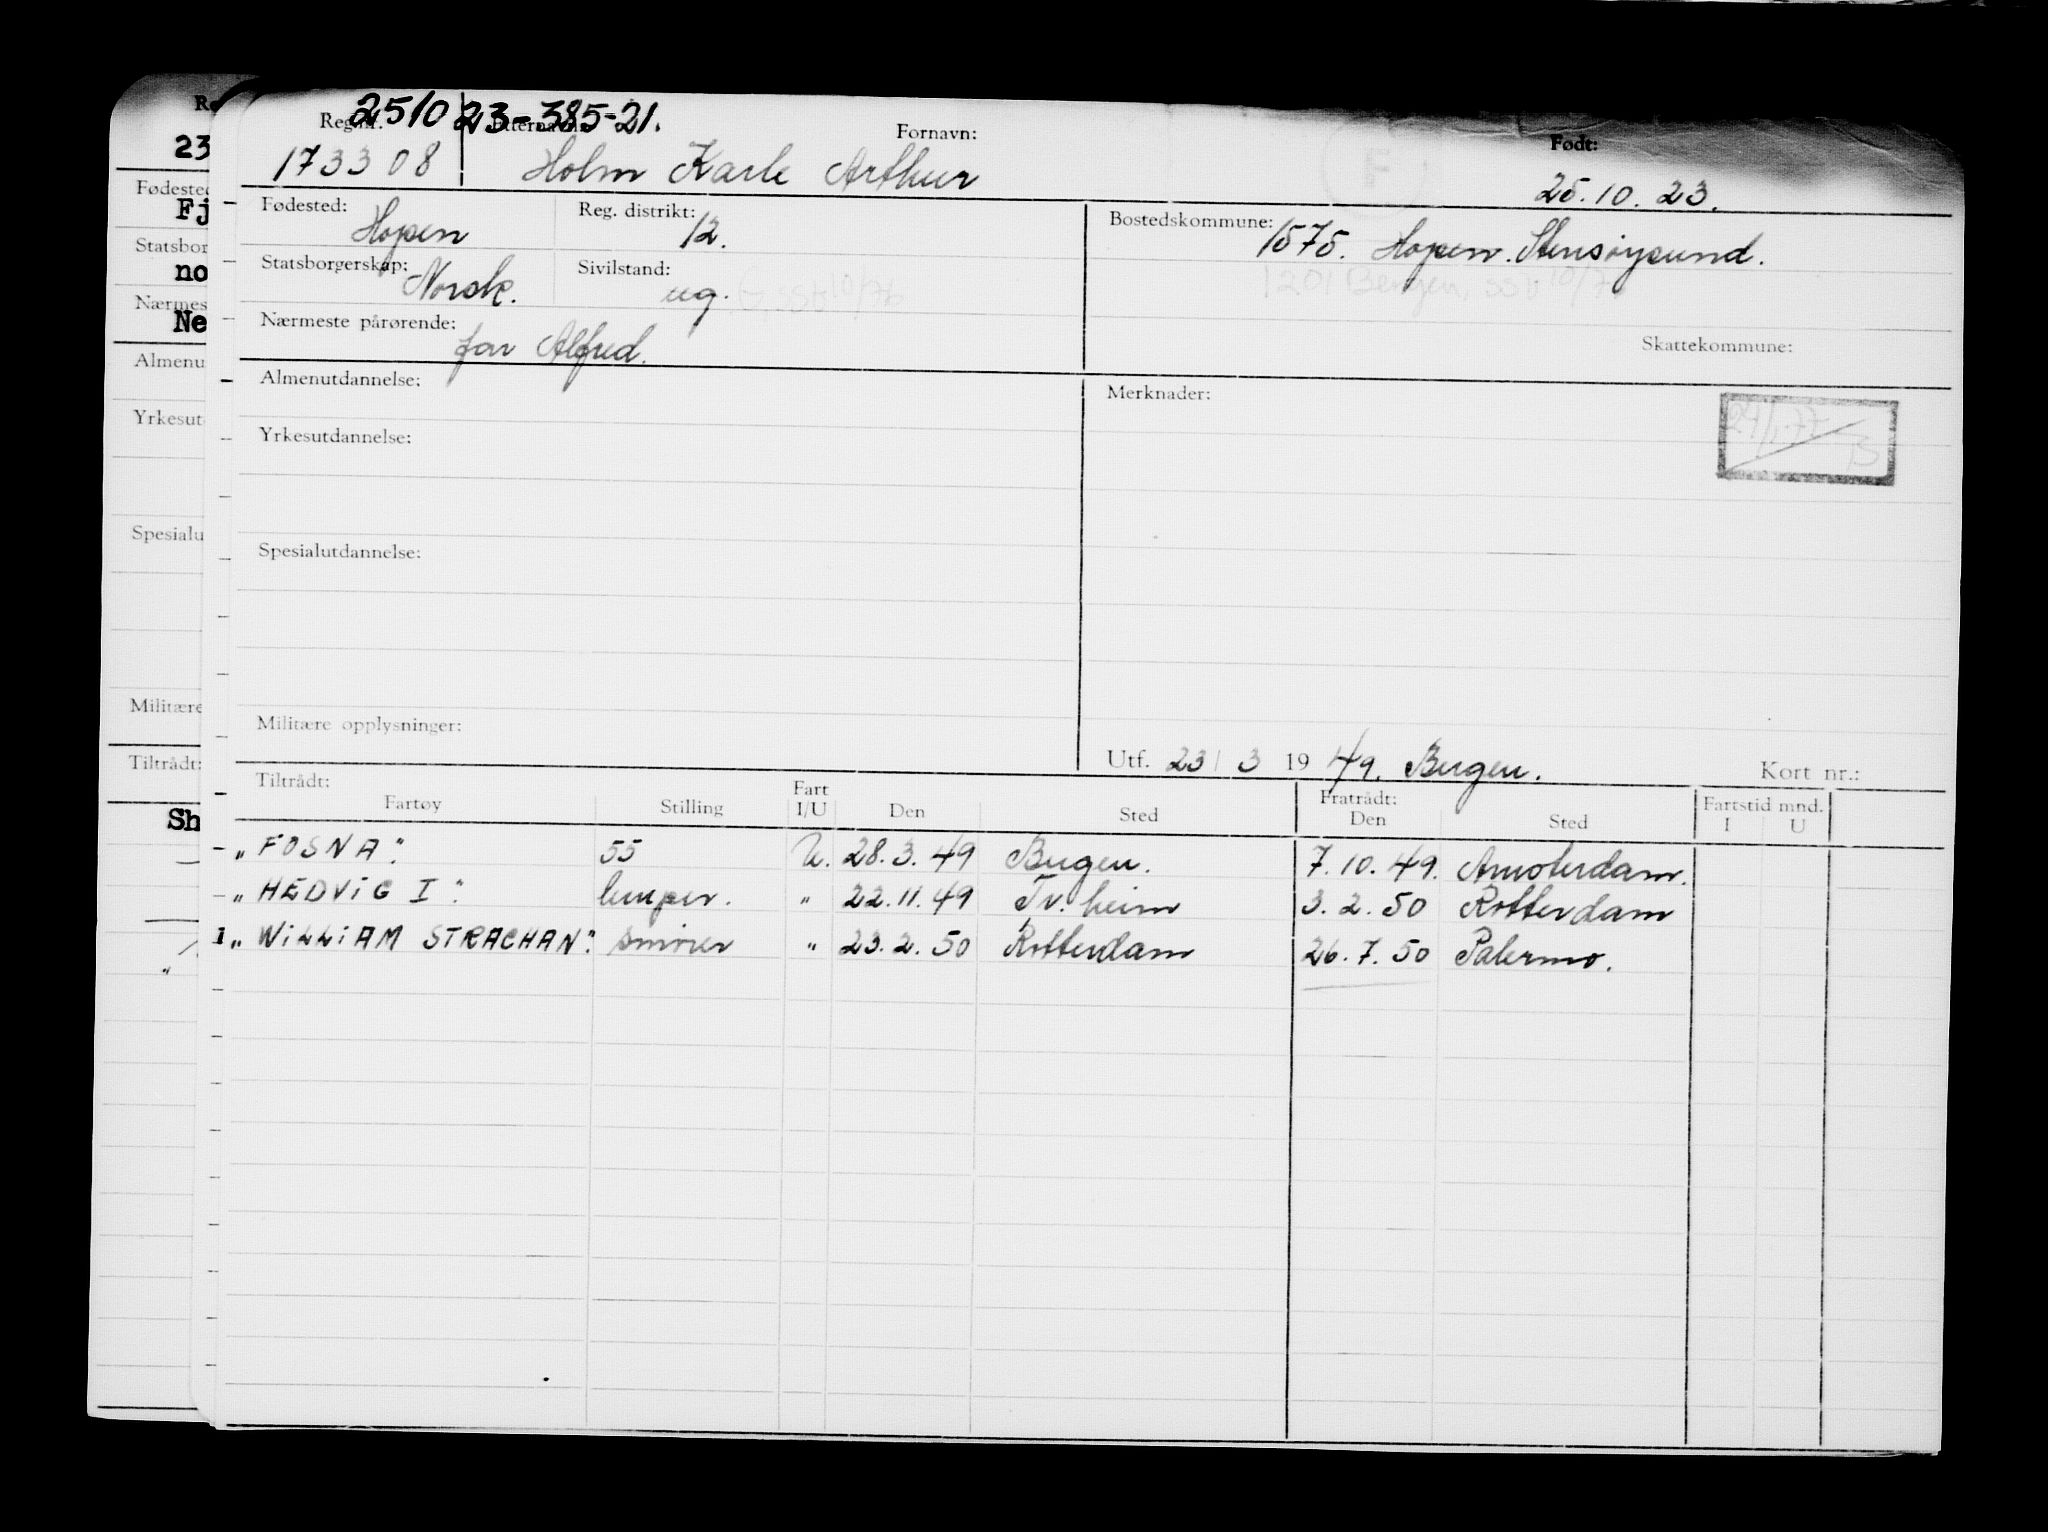 251023-385-21.
Reg.nr. Etternavn: Fornavn: Født:
173308 Holm Karle Arthur 25.10.23.
Fødested: Hopen Reg. distrikt: 12. Bostedskommune: 1575. Hopen. Stensøysund.
Statsborgerskap: Norsk. Sivilstand: ug. 1201 Bergen,
Nærmeste pårørende: far Alfred.
Skattekommune:
Almenutdannelse: Merknader:
Yrkesutdannelse:
Spesialutdannelse:
Militære opplysninger:
Utf. 23/3 1949. Bergen. Kort nr.:
Tiltrådt: Fratrådt: Fartstid mnd.
Fartøy Stilling Fart I/U Den Sted Den Sted I U
"FOSNA". 55 U. 28.3.49 Bergen. 7.10.49. Amsterdam.
"HEDVIG I". lemper. " 22.11.49 Tr.heim 3.2.50 Rotterdam
1 "WILLIAM STRACHAN". smører " 23.2.50 Rotterdam 26.7.50 Palermo.
Re
23
Fødested
Fj
Statsbor
no
Nærmes
Ne
Almenu
Yrkesut
Spesialu
Militære
Tiltrådt:
Sh